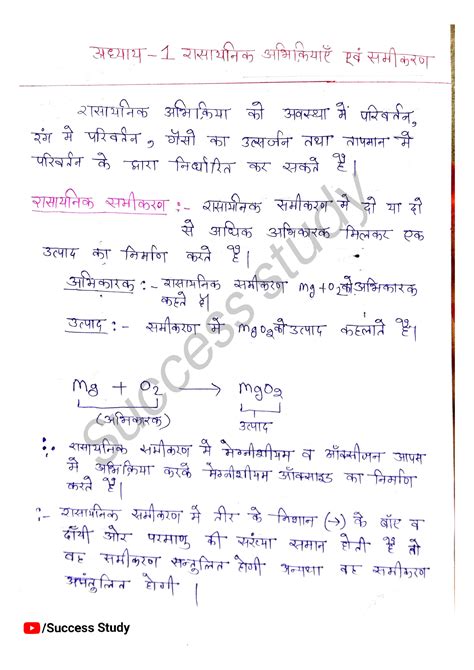 अध्याय-1 रासायनिक अभिक्रियाएँ एवं समीकरण
रासायनिक अभिक्रिया को अवस्था में परिवर्तन,
रंग मे परिवर्तन, गैसो का उत्सर्जन तथा तापमान मे
परिवर्तन के द्वारा निर्धारित कर सकते है।
रासायनिक समीकरण :- रासायनिक समीकरण मे दो या दो
से अधिक अभिकारक मिलकर एक
उत्पाद का निर्माण करते है।
अभिकारक :- रासायनिक समीकरण Mg+O2को अभिकारक
कहते है।
उत्पाद :- समीकरण में MgO2को उत्पाद कहलाते है।
Mg + O2 → MgO2
(अभिकारक) उत्पाद
रासायनिक समीकरण मे मेग्नीशीयम व ऑक्सीजन आपस
मे अभिक्रिया करके मेग्नीशीयम ऑक्साइड का निर्माण
करते है।
:- रासायनिक समीकरण मे तीर के निशान (→) के बाँए व
दाँयी ओर परमाणु की संख्या समान होती है तो
वह समीकरण सन्तुलित होगी अन्यथा वह समीकरण
असंतुलित होगी।
success study
/Success Study